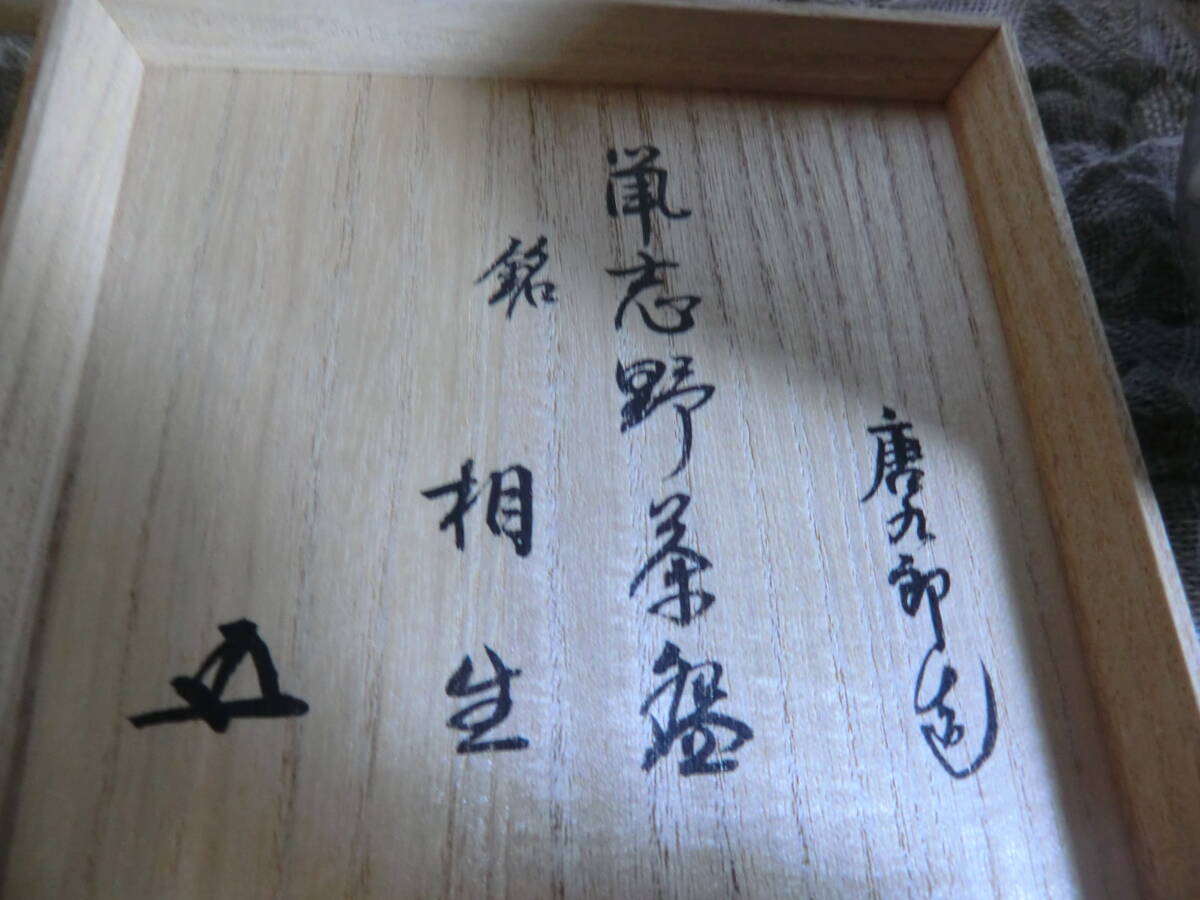 唐九郎造
鼠志野茶盌
銘 相生